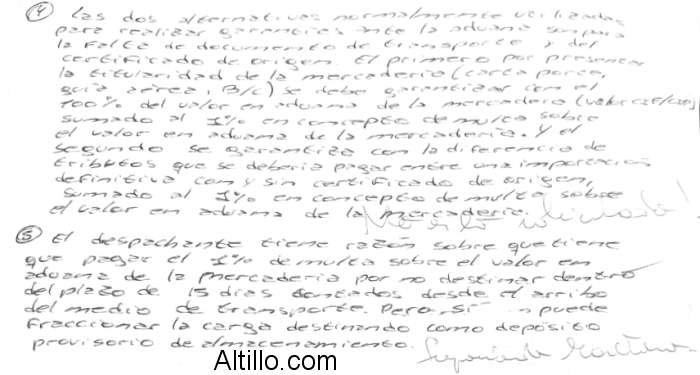 ④ Las dos alternativas normalmente utilizadas
para realizar garantías ante la aduana son para
la falta de documento de transporte y del
certificado de origen. El primero por presentar
la titularidad de la mercadería (carta porte,
guía aérea, B/C) se debe garantizar con el
100% del valor en aduana de la mercadería (valor CIF/CIP)
sumado al 1% en concepto de multa sobre
el valor en aduana de la mercadería. Y el
segundo se garantiza con la diferencia de
tributos que se debería pagar entre una importación
definitiva con y sin certificado de origen,
sumado al 1% en concepto de multa sobre
el valor en aduana de la mercadería.
⑤ El despachante tiene razón sobre que tiene
que pagar el 1% de multa sobre el valor en
aduana de la mercadería por no destinar dentro
del plazo de 15 días contados desde el arribo
del medio de transporte. Pero sí puede
fraccionar la carga destinando como depósito
provisorio de almacenamiento.
Altillo.com